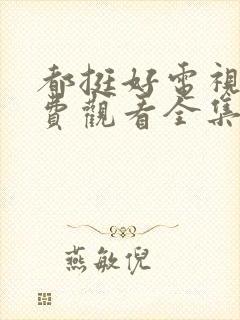 都挺好電視
費觀看全集
燕敏倪